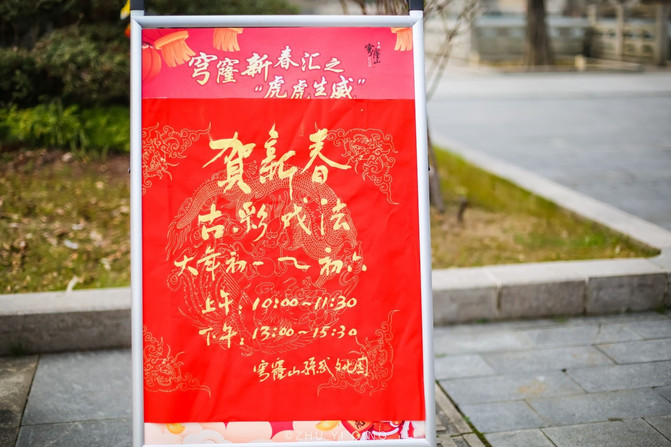 穹窿新春汇之
“虎虎生威”
穹窿
贺新春
古彩戏法
大年初一～初六
上午：10:00～11:30
下午：13:00～15:30
穹窿山孙武文化园
©ZHU YI